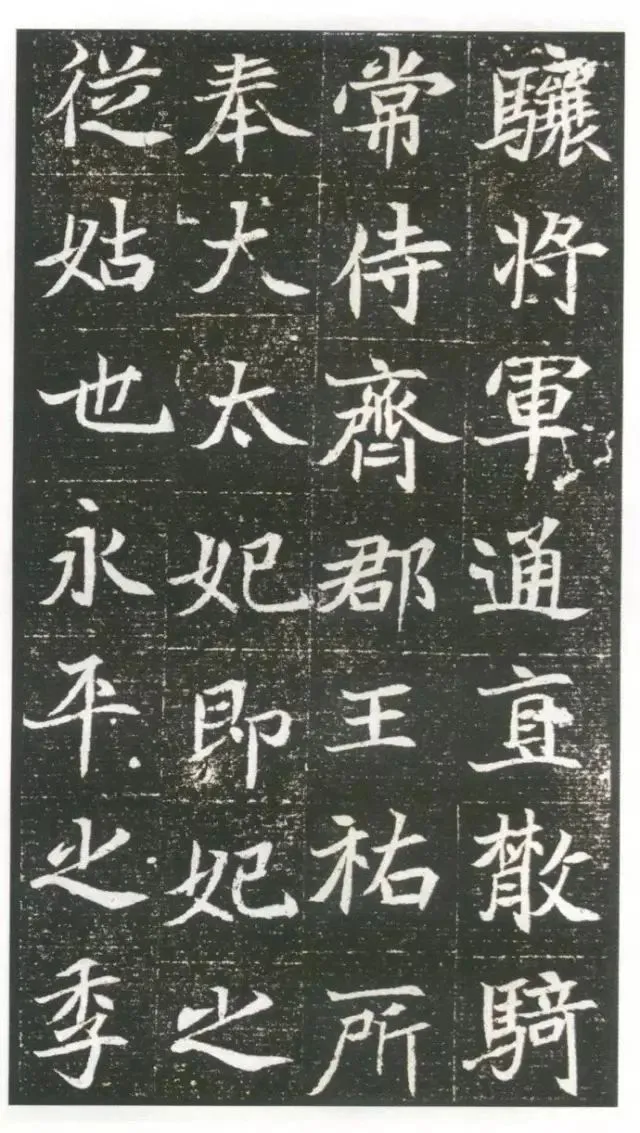 驤將軍通直散騎
常侍齊郡王祐所
奉大太妃即妃之
從姑也永平之季